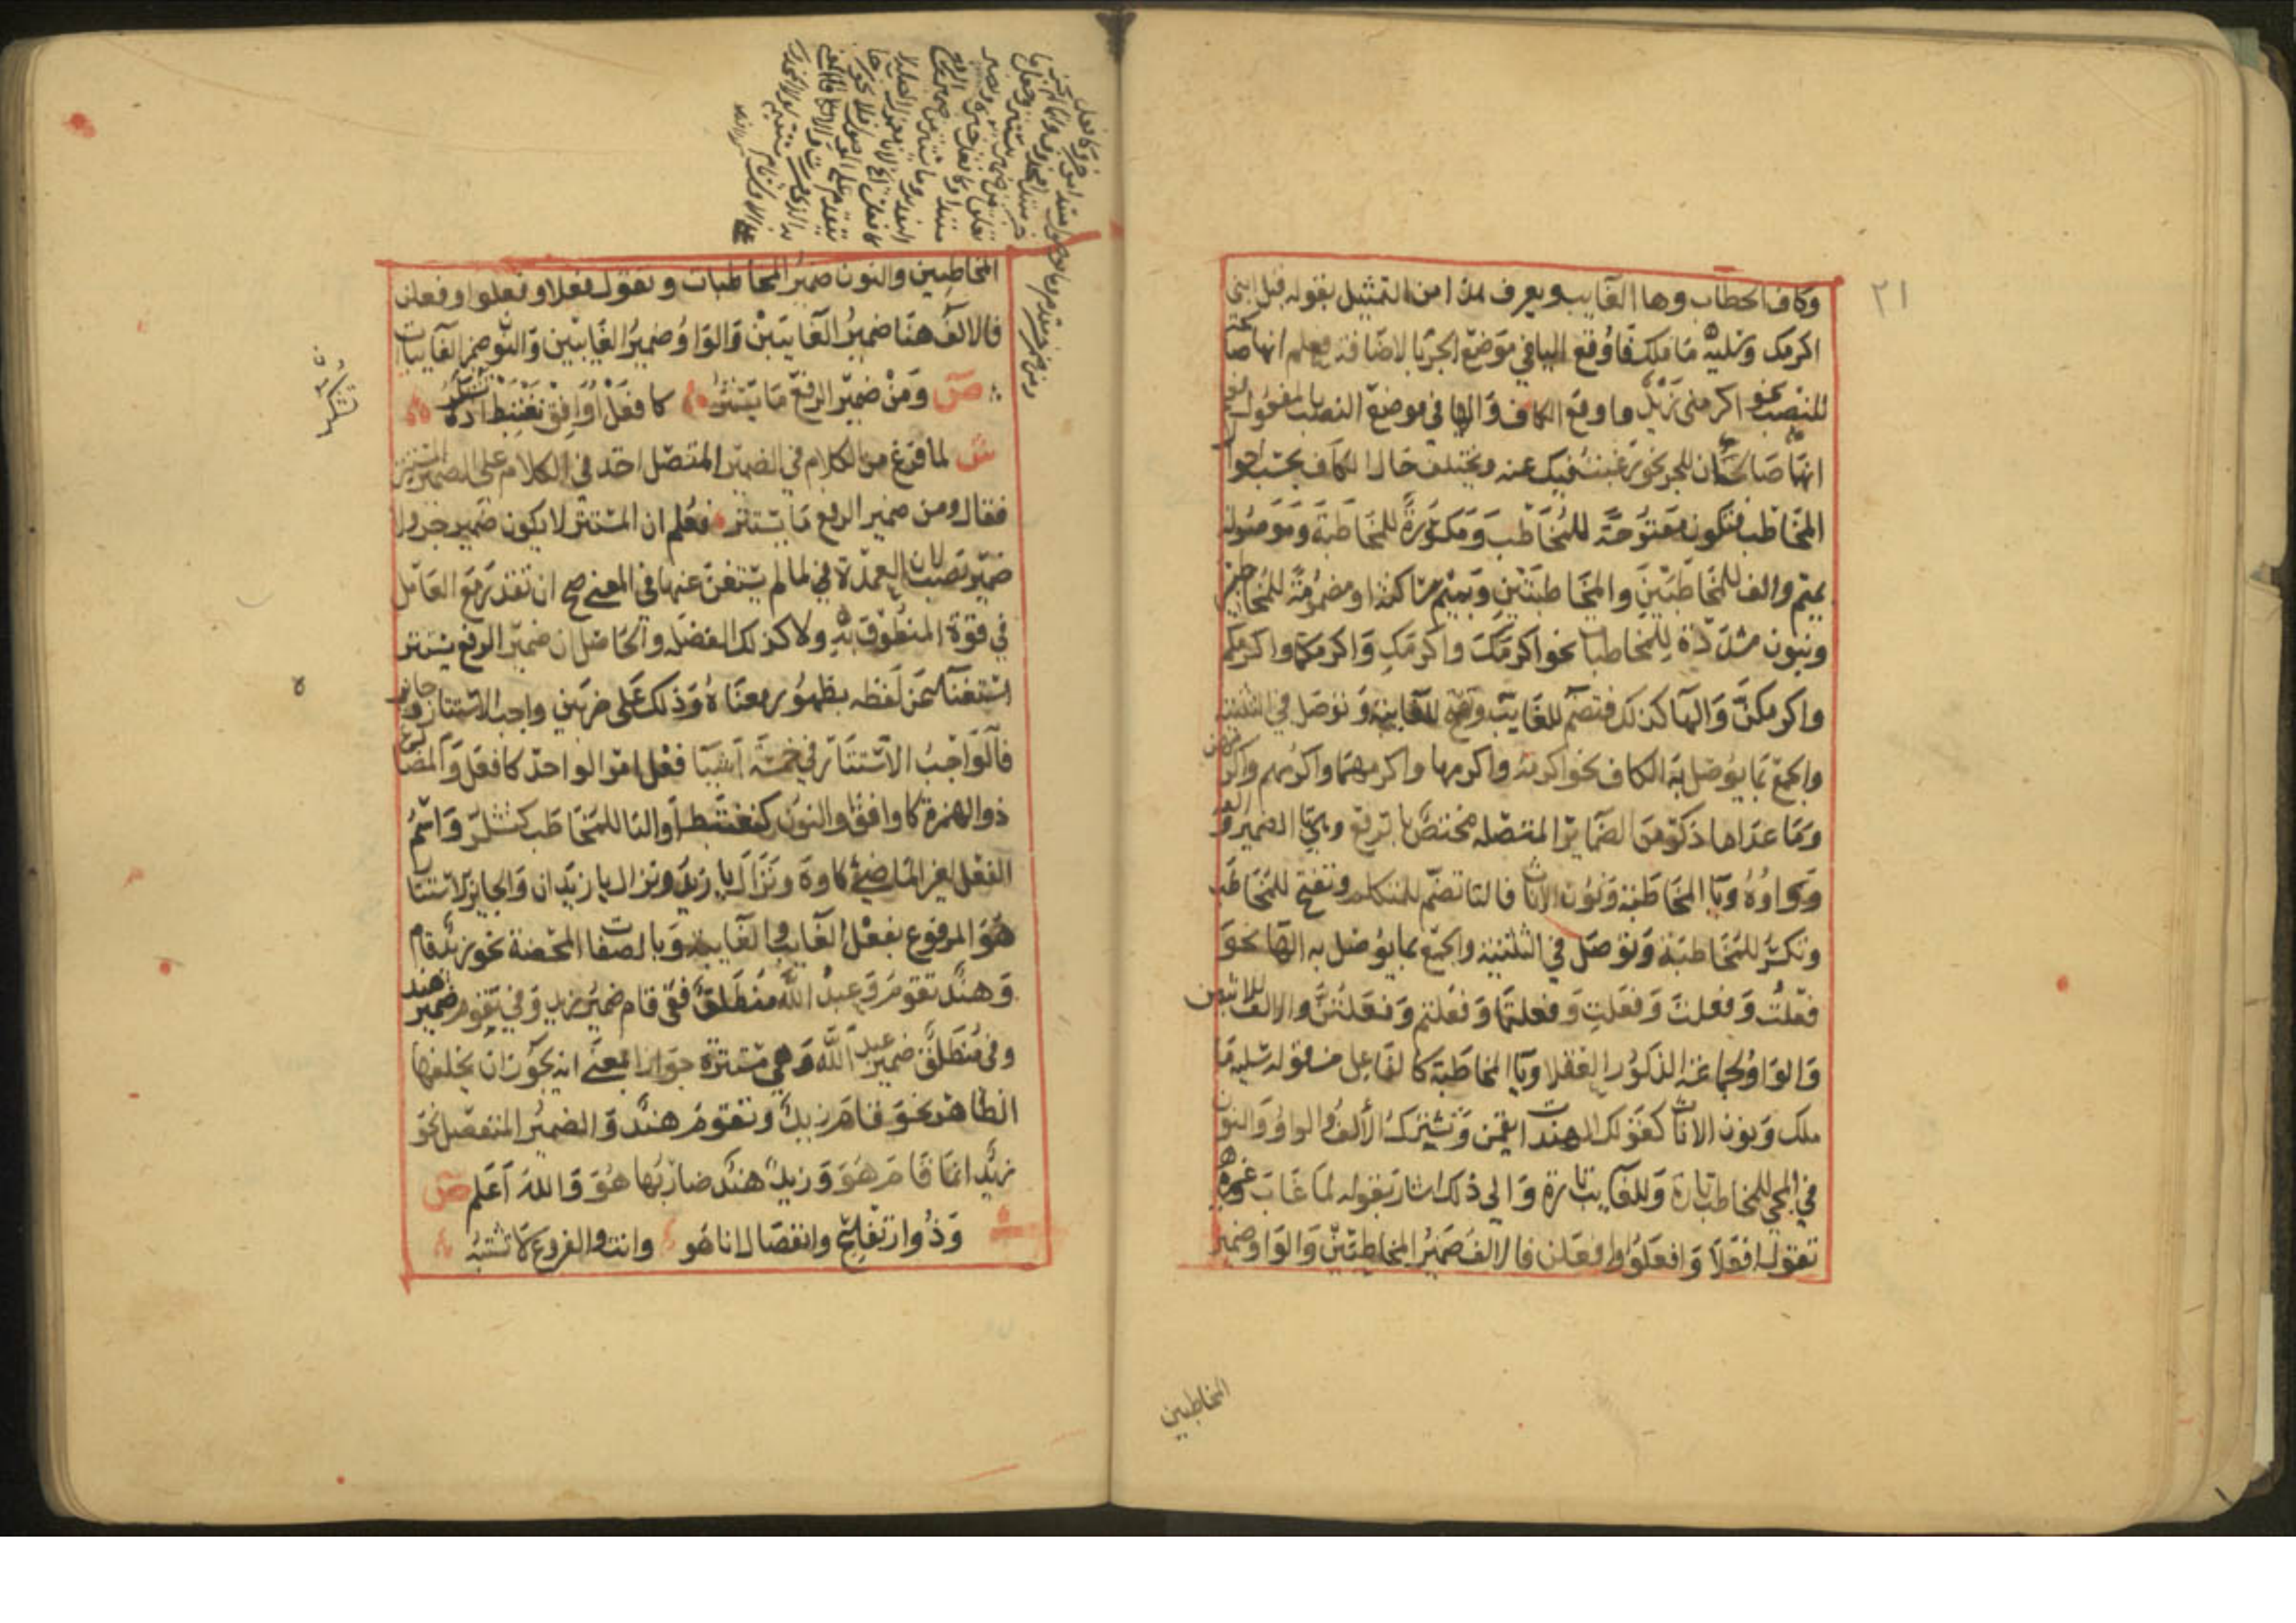 ٢١
وكاف الخطاب وها الغايب ويعرف هذا من التمثيل بقوله قبل ابني
اكرمك وسليه ما ملك فاوقع اليا في موضع الجر بالاضافة فعلم انها صالحة
للنصب نحو اكرمني زيد واوقع الكاف والها في موضع النصب بالمفعول
انهما صالحتان للجر نحو رغبت فيك عنه ويختلف حال الكاف بحسب احوال
المخاطب فتكون مفتوحة للمخاطب ومكسورة للمخاطبة وموصولة
بميم والف للمخاطبين والمخاطبتين وبميم ساكنة او مضمومة للمخاطبين
وبنون مشددة للمخاطبات نحو اكرمك واكرمك واكرمكما واكرمكم
واكرمكن والها كذلك فتضم للغايب وتفتح للغايبة وتوصل في التثنية
والجمع بما يوصل به الكاف نحو اكرمه واكرمها واكرمهما واكرمهم واكرمهن
وما عدا ما ذكر من الضماير المتصلة مختص بالرفع وهي تا الضمير والفه
وواوه ويا المخاطبة ونون الاناث فالتا تضم للمتكلم وتفتح للمخاطب
وتكسر للمخاطبة وتوصل في التثنية والجمع بما يوصل به الها نحو
فعلت وفعلت وفعلت وفعلتما وفعلتم وفعلتن والالف للاثنين
والواو لجماعة الذكور العقلا ويا المخاطبة كالفاعل من قوله سليه ما
ملك ونون الاناث كقولك الهندات يقمن وتشترك الالف والواو والنون
في المجي للمخاطب تارة وللغايب تارة والى ذلك اشار بقوله لما غاب وغيره
تقول افعلا وافعلوا وافعلن فالالف ضمير المخاطبين والواو ضمير
المخاطبين
المخاطبين والنون ضمير المخاطبات وتقول فعلا وفعلوا وفعلن
فالالف هنا ضمير الغايبين والواو ضمير الغايبين والنون ضمير الغايبات
ص ومن ضمير الرفع ما يستتر كافعل اوافق نغتبط اذ تشكر
ش لما فرغ من الكلام في الضمير المتصل اخذ في الكلام على الضمير المستتر
فقال ومن ضمير الرفع ما يستتر فعلم ان المستتر لا يكون ضمير جر ولا
ضمير نصب لان العمدة في لما لم يستغن عنها في المعنى صح ان تقدر مع العامل
في قوة المنطوق به ولا كذلك الفضلة والحاصل ان ضمير الرفع يستتر
استغنا عن لفظه بظهور معناه وذلك على ضربين واجب الاستتار وجائز
فالواجب الاستتار في خمسة اشيا فعل امر الواحد كافعل والمضارع
ذو الهمزة كاوافق والنون كنغتبط او التا للمخاطب كتشكر واسم
الفعل لغير الماضي كاوه ونزال يا زيد ونزال يا زيدان والجايز الاستتار
هو المرفوع بفعل الغايب والغايبة وبالصفات المحضة نحو زيد قام
وهند تقوم وعبد الله منطلق ففي قام ضمير زيد وفي تقوم ضمير هند
وفي منطلق ضمير عبد الله وهي مستترة جوازا بمعنى انه يجوز ان يخلفها
الظاهر نحو قام زيد وتقوم هند والضمير المنفصل نحو
زيد انما قام هو وزيد هند ضاربها هو والله اعلم ص
وذو ارتفاع وانفصال انا هو وانت والفروع لا تشتبه
تشكر